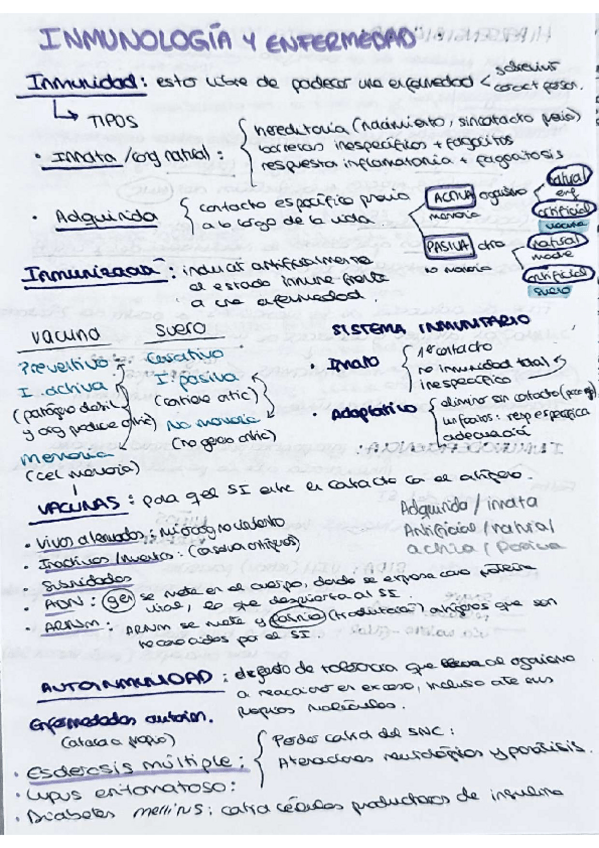 INMUNOLOGÍA Y ENFERMEDAD
Inmunidad: estar libre de padecer una enfermedad <
TIPOS
• Innata /org natural: { hereditaria (nacimiento, sin contacto previo)
barreras inespecíficas + fagocitos
respuesta inflamatoria + fagocitosis
• Adquirida { contacto específico previo
a lo largo de la vida
ACTIVA organismo
memoria
natural
enf
artificial
vacuna
PASIVA otro
no memoria
natural
madre
artificial
suero
Inmunización: inducir artificialmente
al estado inmune frente
a una enfermedad.
vacuna
suero
Preventivo
Curativo
I. activa
I. pasiva
(patógeno debil
y org produce antic)
(contiene antic)
memoria
no memoria
(cel memoria)
(no genera antic)
SISTEMA INMUNITARIO
• Innato { 1er contacto
no inmunidad total
inespecífico
• Adaptativo { eliminar sin contacto
linfocitos: resp específica
adecuada
VACUNAS: para que el SI entre en contacto con el antígeno
Adquirida / innata
Artificial / natural
activa / Pasiva
• Vivos atenuados: microorg no violento
• Inactivos / muertos: (conserva antígenos)
• Subunidades
• ADN: gen se mete en el cuerpo, donde se expresa como proteína
viral, lo que despierta al SI.
• ARNm: ARNm se mete y (traducción) antígenos que son
reconocidos por el SI.
AUTOINMUNIDAD: defecto de tolerancia que lleva al organismo
a reaccionar en exceso, incluso ante sus
propias moléculas.
Enfermedades autoinm.
(ataca a propio)
• Esclerosis múltiple: { SNC:
Alteraciones neurológicas y parálisis.
• Lupus eritomatoso:
• Diabetes mellitus: contra células productoras de insulina